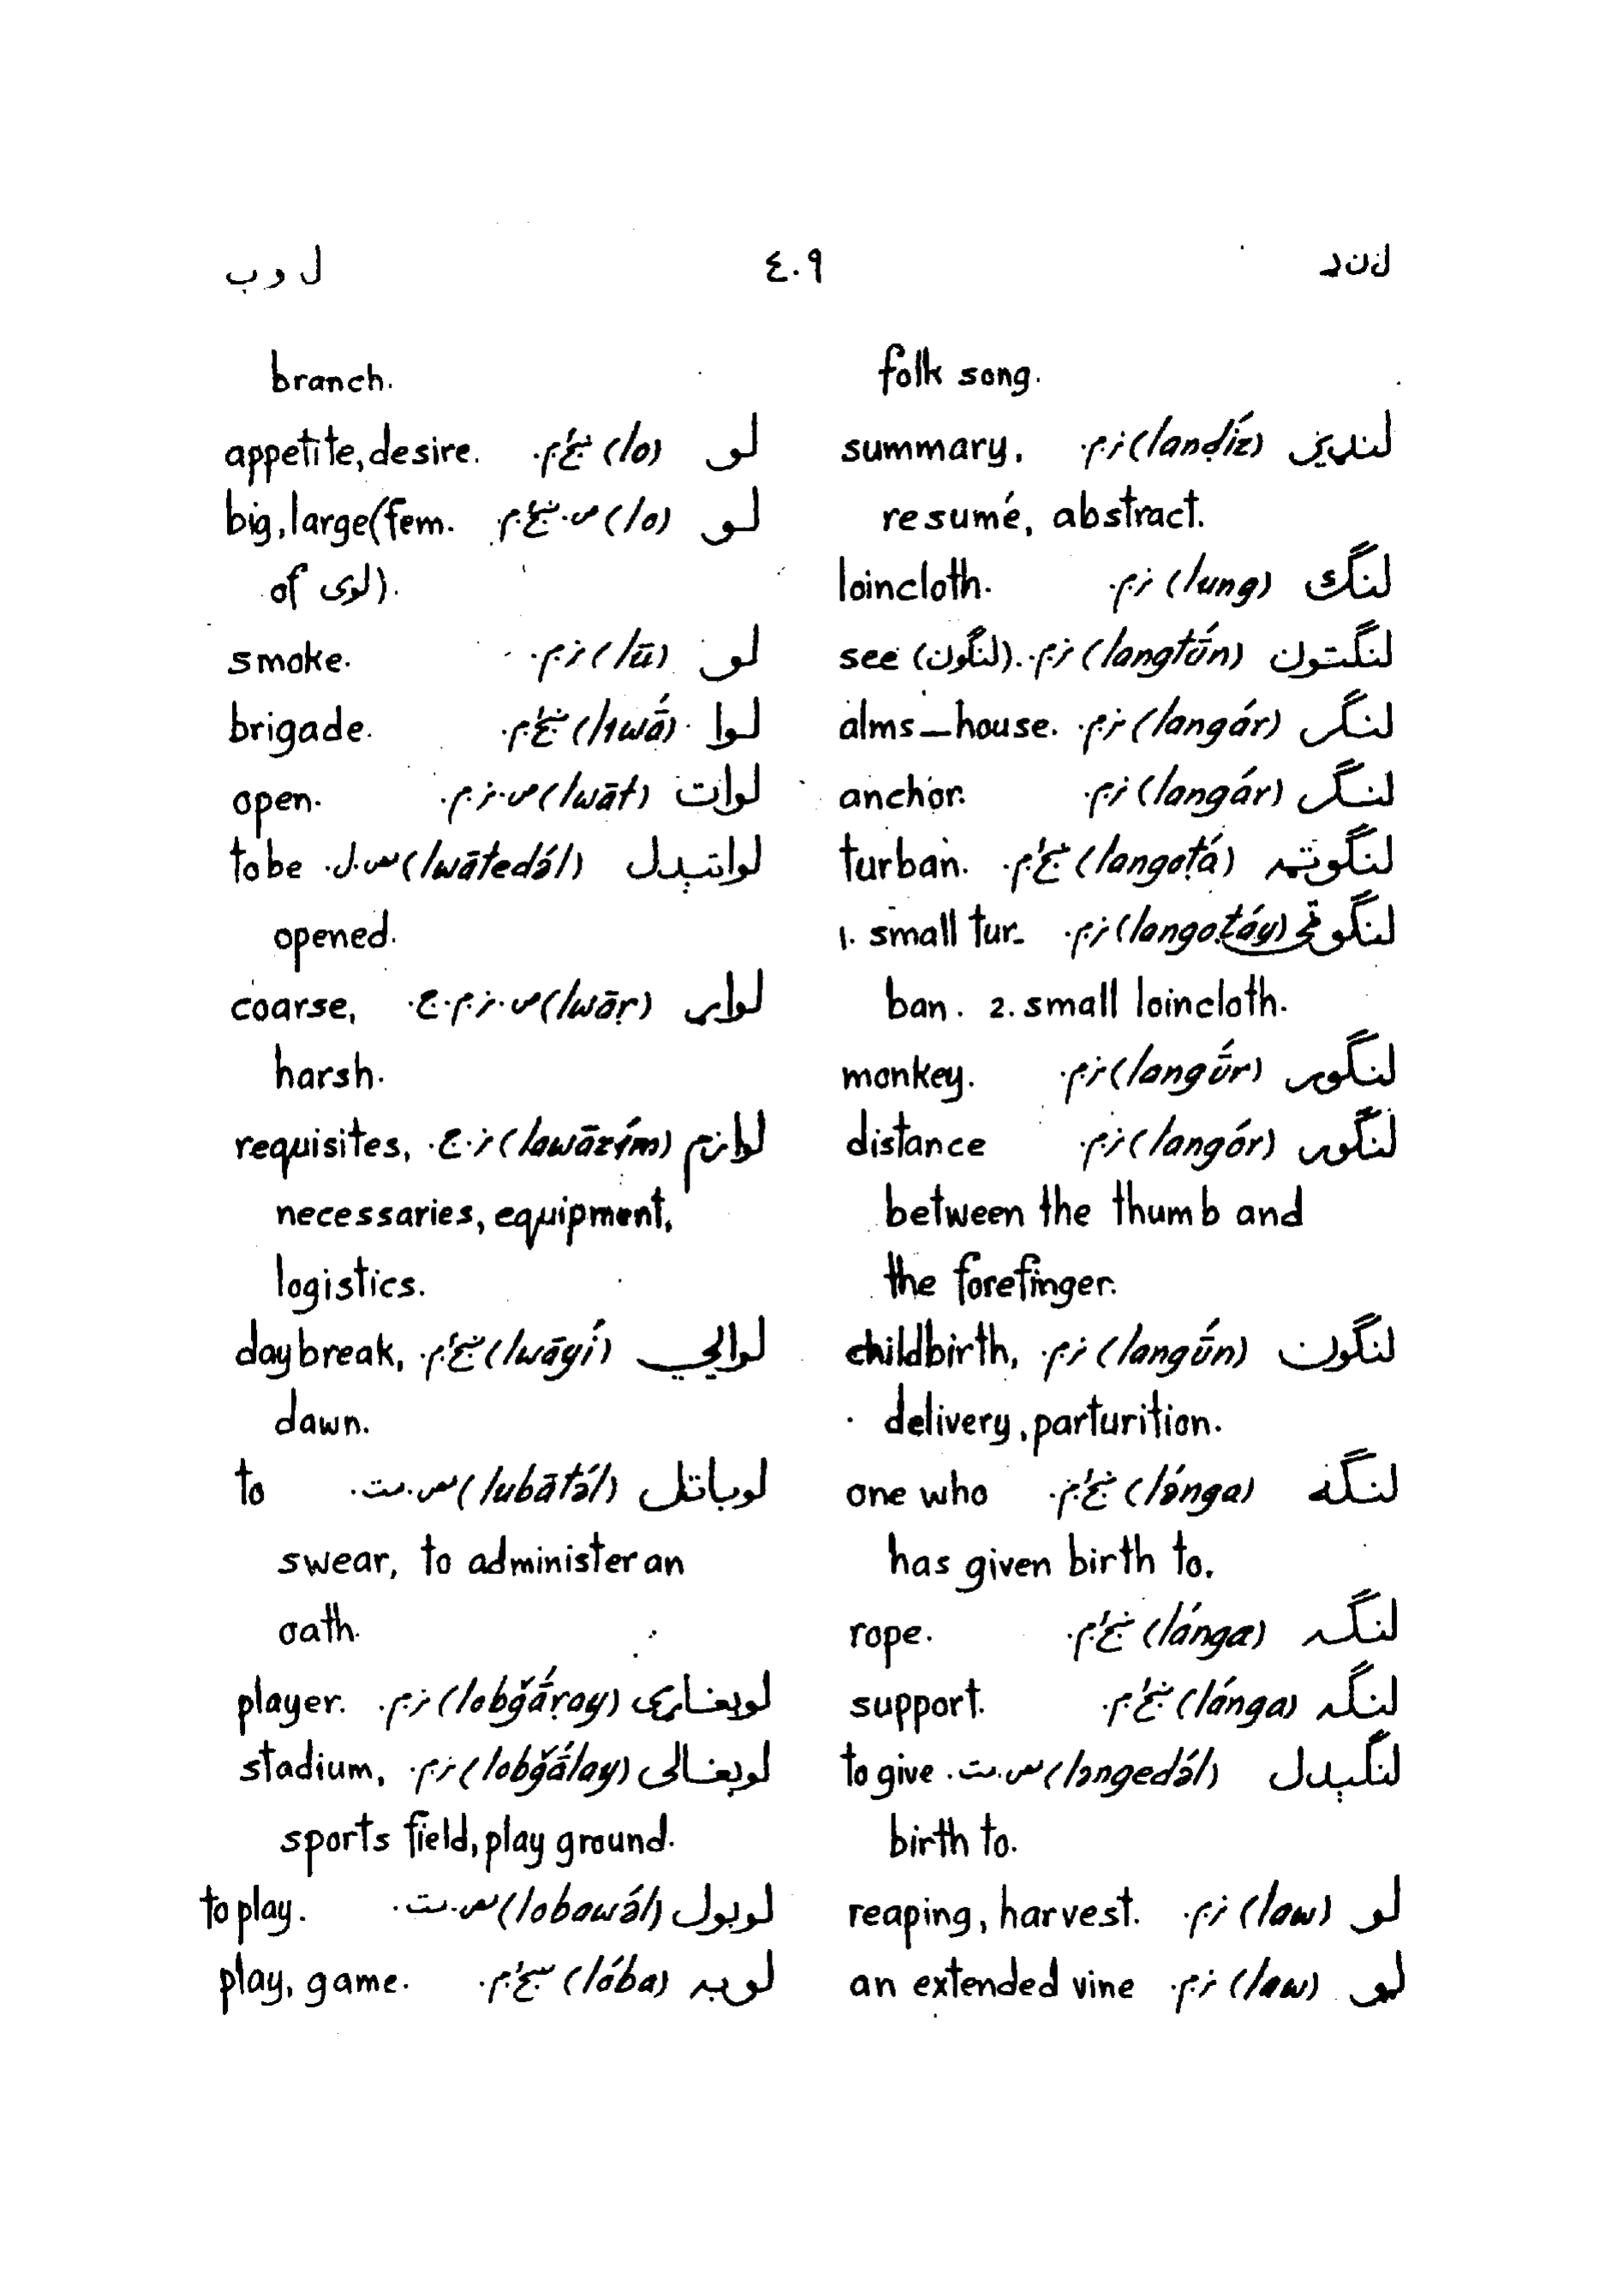 لند
٤٠٩
ل و ب
folk song.
لنډيز (lanḍíz) نر.م. summary,
resumé, abstract.
لنګ (lung) نر.م. loincloth.
لنګتون (langtū́n) نر.م. see (لنګون).
لنګر (langár) نر.م. alms-house.
لنګر (langár) نر.م. anchor.
لنګوټه (langoṭá) ښځ.م. turban.
لنګوټی (langoṭáy) نر.م. 1. small tur-
ban. 2. small loincloth.
لنګور (langū́r) نر.م. monkey.
لنګور (langór) نر.م. distance
between the thumb and
the forefinger.
لنګون (langū́n) نر.م. childbirth,
delivery, parturition.
لنګه (lə́nga) ښځ.م. one who
has given birth to.
لنګه (lánga) ښځ.م. rope.
لنګه (lánga) ښځ.م. support.
لنګېدل (ləngedə́l) مص.ت. to give
birth to.
لو (law) نر.م. reaping, harvest.
لو (law) نر.م. an extended vine
branch.
لو (lo) ښځ.م. appetite, desire.
لو (lo) ص.ښځ.م. big, large (fem.
of لوی).
لو (lū) نر.م. smoke.
لوا (liwā́) ښځ.م. brigade.
لوات (lwāt) ص.نر.م. open.
لواتېدل (lwātedə́l) مص.ل. to be
opened.
لواړ (lwāṛ) ص.نر.م.ج. coarse,
harsh.
لوازم (lawāzím) نر.ج. requisites,
necessaries, equipment,
logistics.
لوايي (lwāyí) ښځ.م. daybreak,
dawn.
لوباتل (lubātə́l) مص.ت. to
swear, to administer an
oath.
لوبغاړی (lobğā́ṛay) نر.م. player.
لوبغالی (lobğā́lay) نر.م. stadium,
sports field, play ground.
لوبول (lobawə́l) مص.ت. to play.
لوبه (lóba) ښځ.م. play, game.